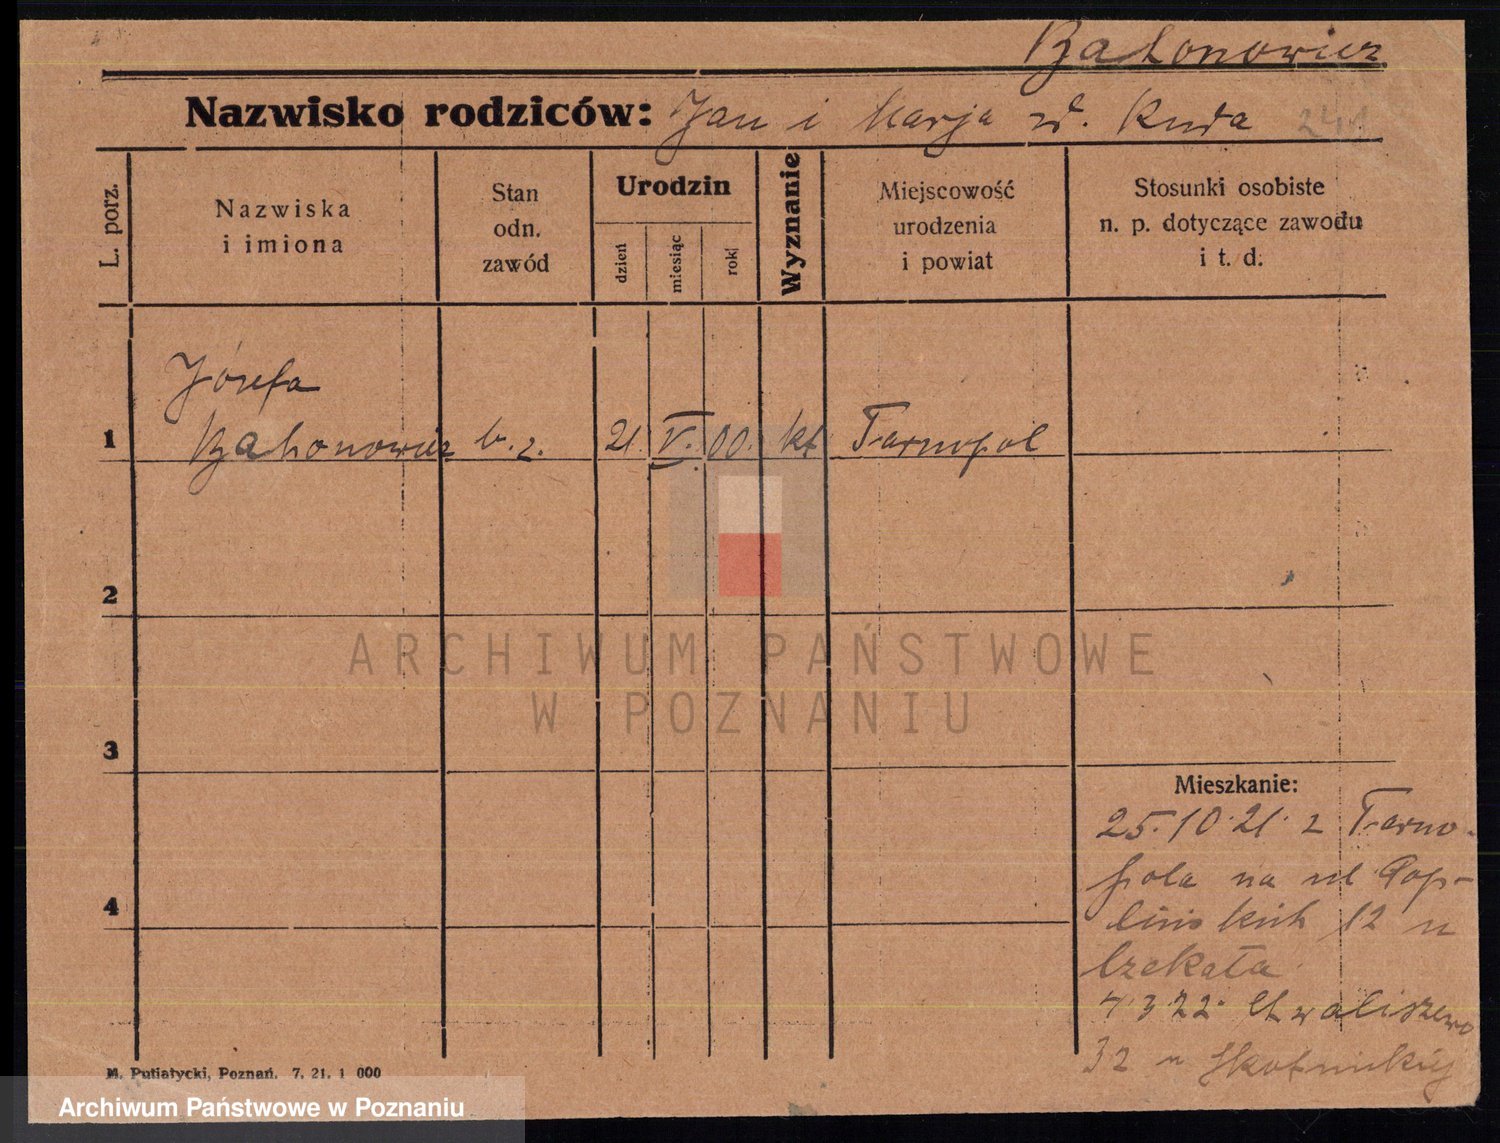 Bahonowicz
Nazwisko rodziców: Jan i Marja z d. Ruda
L. porz.
Nazwiska
i imiona
Stan
odn.
zawód
Urodzin
dzień
miesiąc
rok
Wyznanie
Miejscowość
urodzenia
i powiat
Stosunki osobiste
n. p. dotyczące zawodu
i t. d.
Józefa
1 Bahonowicz b. z. 21. V. 00. kt Tarnopol
2
3
4
Mieszkanie:
25.10.21. z Tarno-
pola na ul
12 u
4.3.22. Chwaliszewo
32 u
M. Putiatycki, Poznań. 7. 21. 1 000
ARCHIWUM PAŃSTWOWE
W POZNANIU
Archiwum Państwowe w Poznaniu